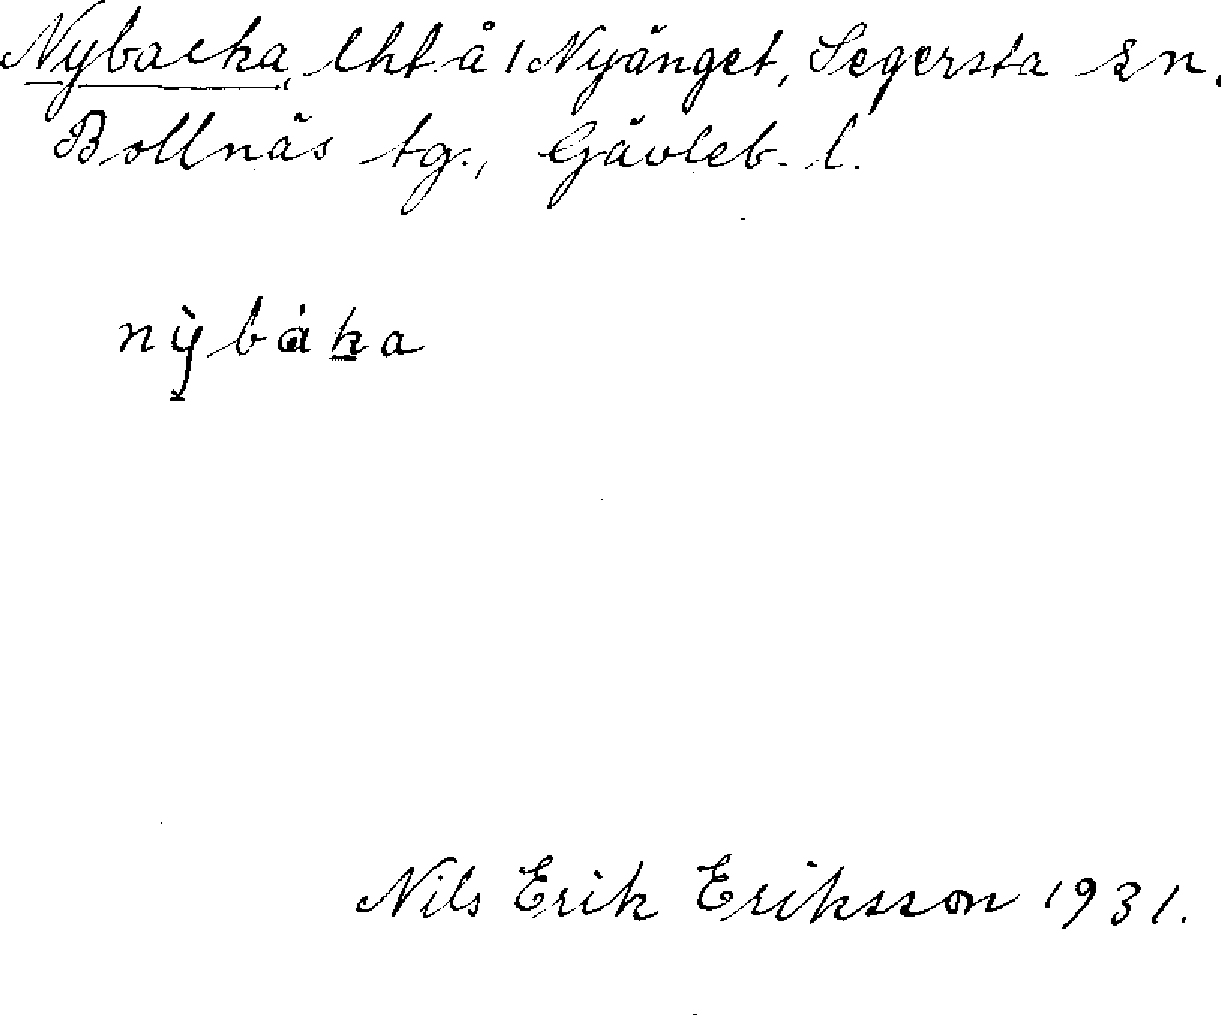 Nybacka, lht å 1 Nyänget, Segersta sn.
Bollnäs tg., Gävleb. l.
nỳbáka
Nils Erik Eriksson 1931.